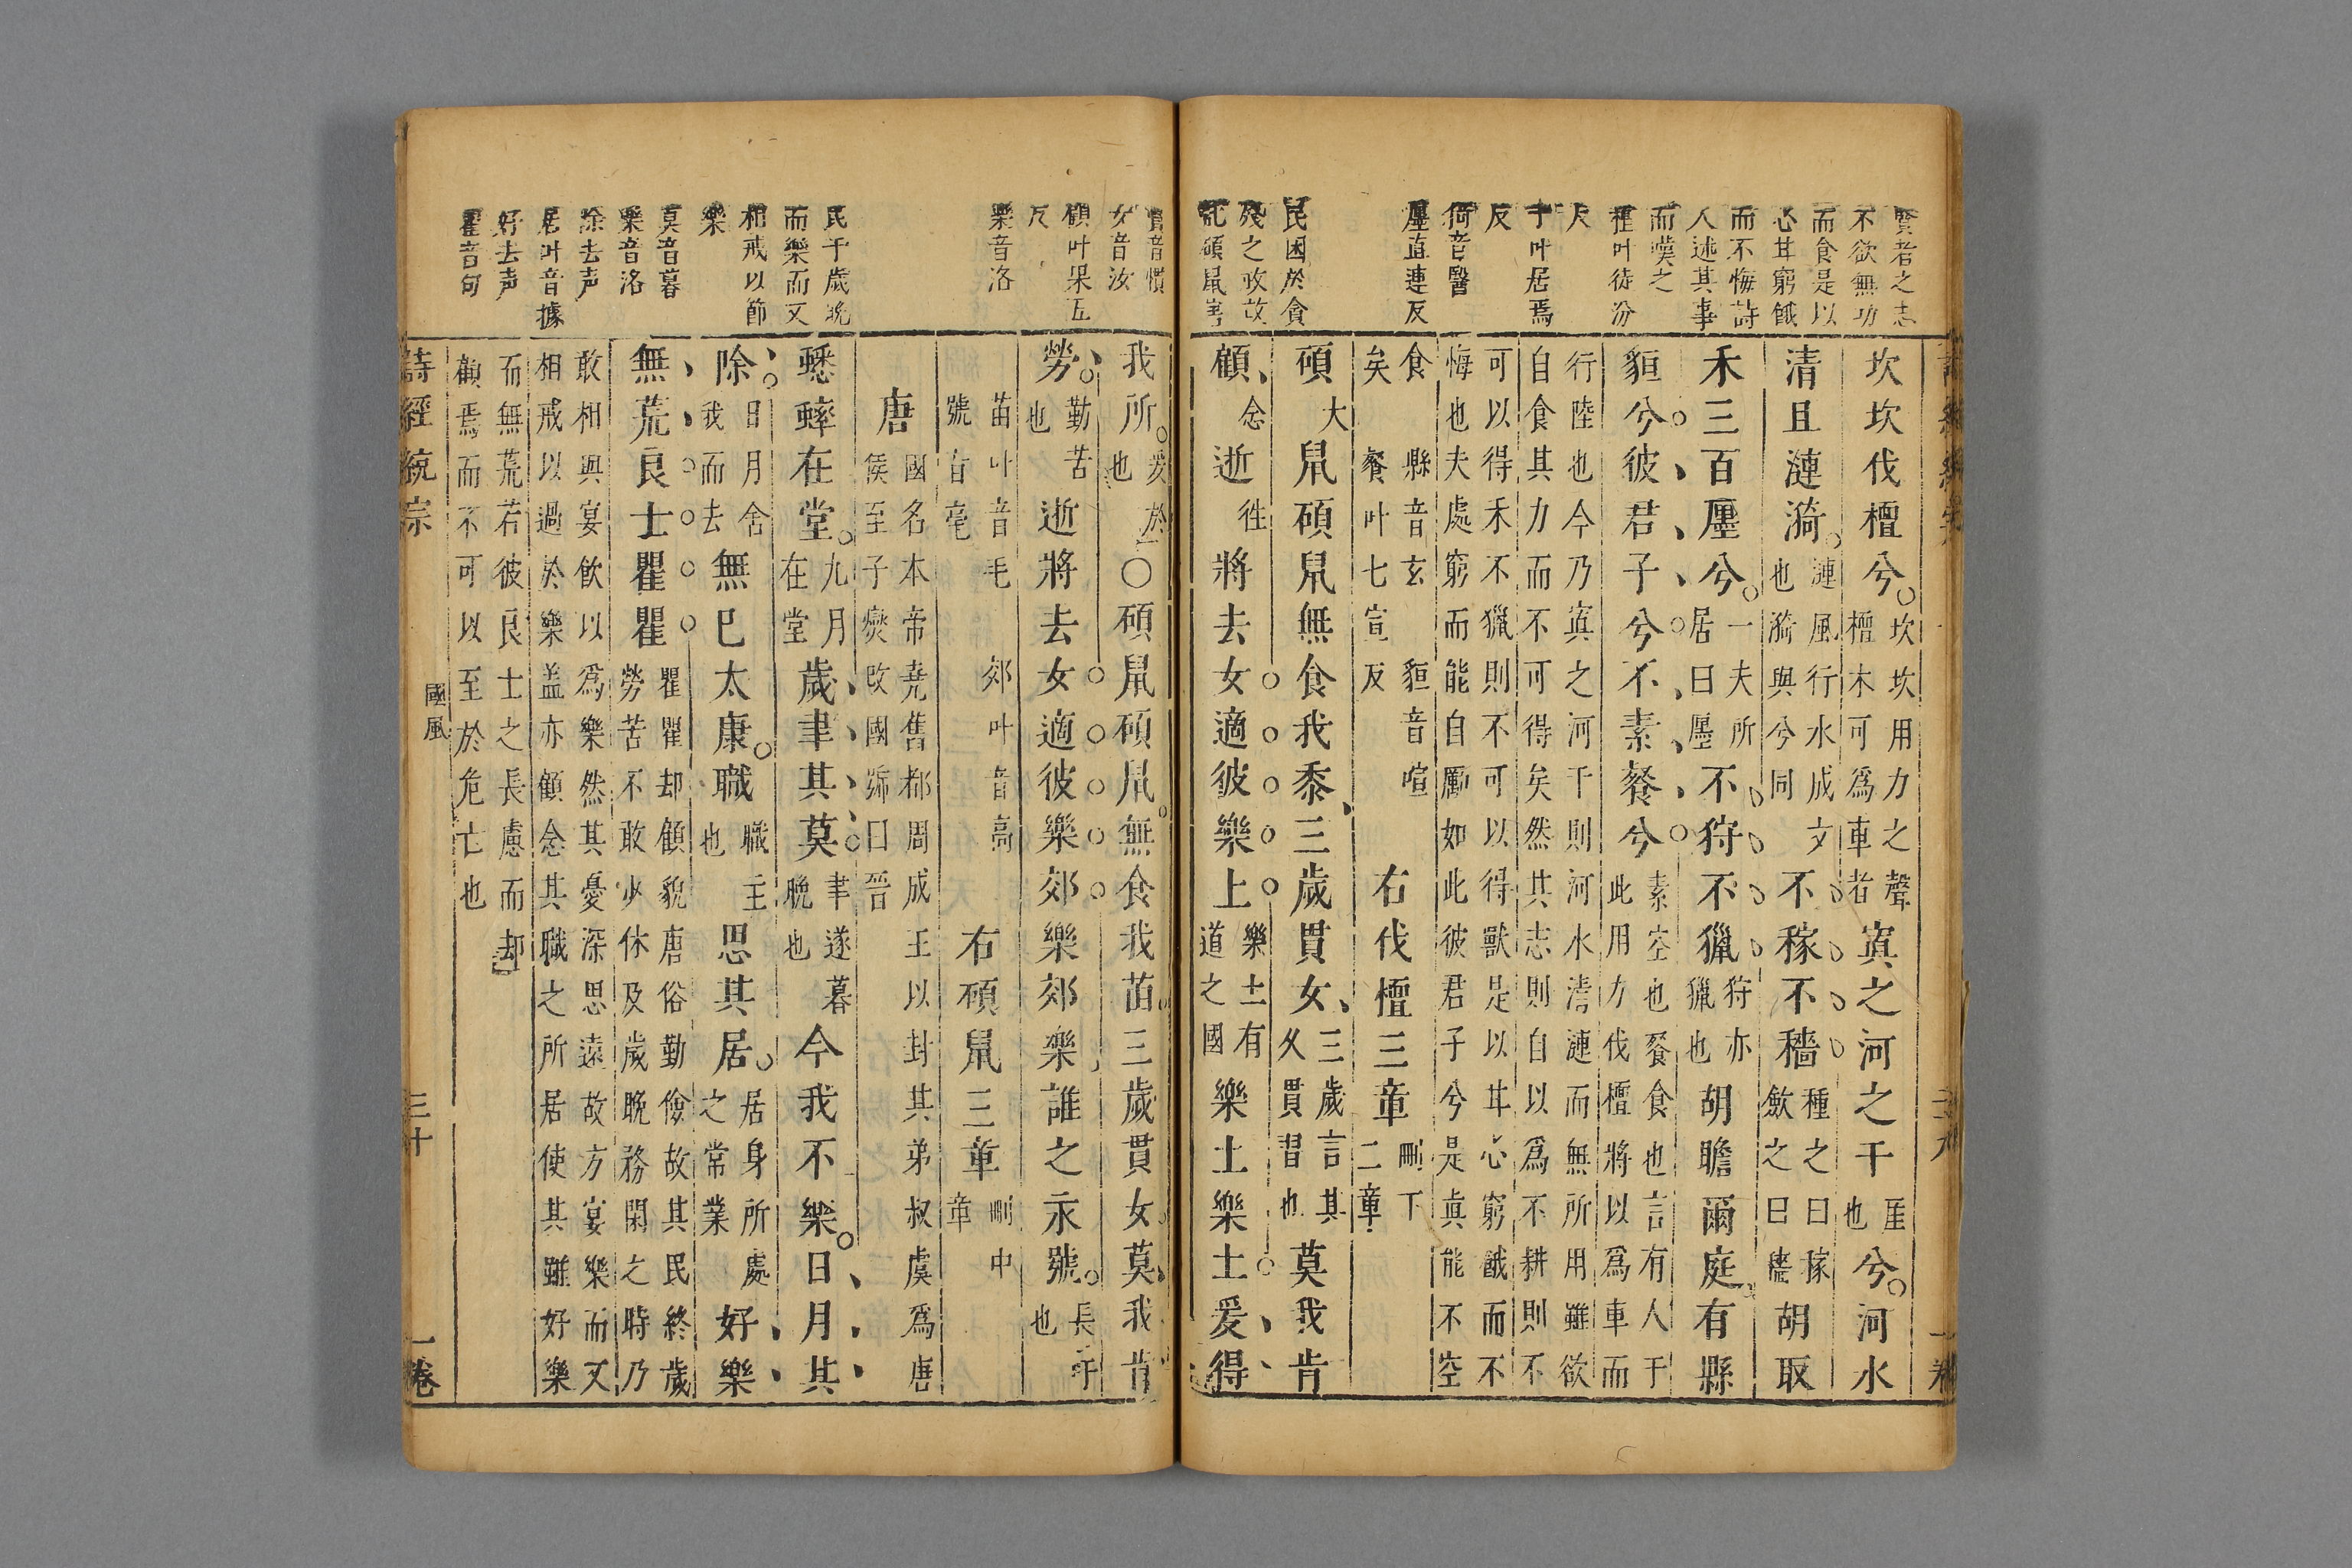 賢者之志
不欲無功
而食是以
心甘窮餓
而不悔詩
人述其事
而嘆之
檀叶徒汾
反
干叶居焉
反
猗音醫
廛直連反
民困於貪
殘之政故
託碩鼠言
坎坎伐檀兮。坎坎用力之聲檀木可爲車者寘之河之干厓也兮。河水
清且漣漪。漣風行水成文也漪與兮同不稼不穡種之曰稼斂之曰穡胡取
禾三百廛兮。一夫所居曰廛不狩不獵狩亦獵也胡瞻爾庭。有縣
貆兮。彼君子兮。不素餐兮。素空也餐食也言有人于此用力伐檀將以爲車而
行陸也今乃寘之河干則河水清漣而無所用雖欲
自食其力而不可得矣然其志則自以爲不耕則不
可以得禾不獵則不可以得獸是以甘心窮餓而不
悔也夫處窮而能自勵如此彼君子兮是真能不空
食矣 縣音玄餐叶七宣反 貆音喧 右伐檀三章刪下二章
碩大鼠碩鼠無食我黍、三歲貫女、三歲言其久貫習也莫我肯
顧、念逝徃將去女適彼樂土樂土有道之國樂土樂土。爰得
貫音慣
女音汝
顧叶果五
反
樂音洛
民于歲晚
而樂而又
相戒以節
樂
莫音暮
樂音洛
除去声
居叶音據
好去声
瞿音句
我所。爰於也○碩鼠碩鼠。無食我苗。三歲貫女。莫我肯
勞。勤苦也逝將去女適彼樂郊樂郊樂郊誰之永號。長呼也
苗叶音毛號音毫 郊叶音高 右碩鼠三章刪中章
唐國名本帝堯舊都周成王以封其弟叔虞爲唐侯至子燮改國號曰晉
蟋蟀在堂。九月在堂歲聿其莫。聿遂暮晚也今我不樂。日月其
除。日月舍我而去無已太康。職職主也思其居。居身所處之常業好樂
無荒。良士瞿瞿瞿瞿却顧貌唐俗勤儉故其民終歲勞苦不敢少休及歲晚務閑之時乃
敢相與宴飲以爲樂然其憂深思遠故方宴樂而又
相戒以過於樂盖亦顧念其職之所居使其雖好樂
而無荒若彼良士之長慮而却
顧焉而不可以至於危亡也
詩經統宗
國風
三十
一卷